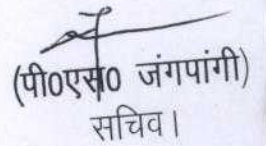 (पी0एस0 जंगपांगी)
सचिव।